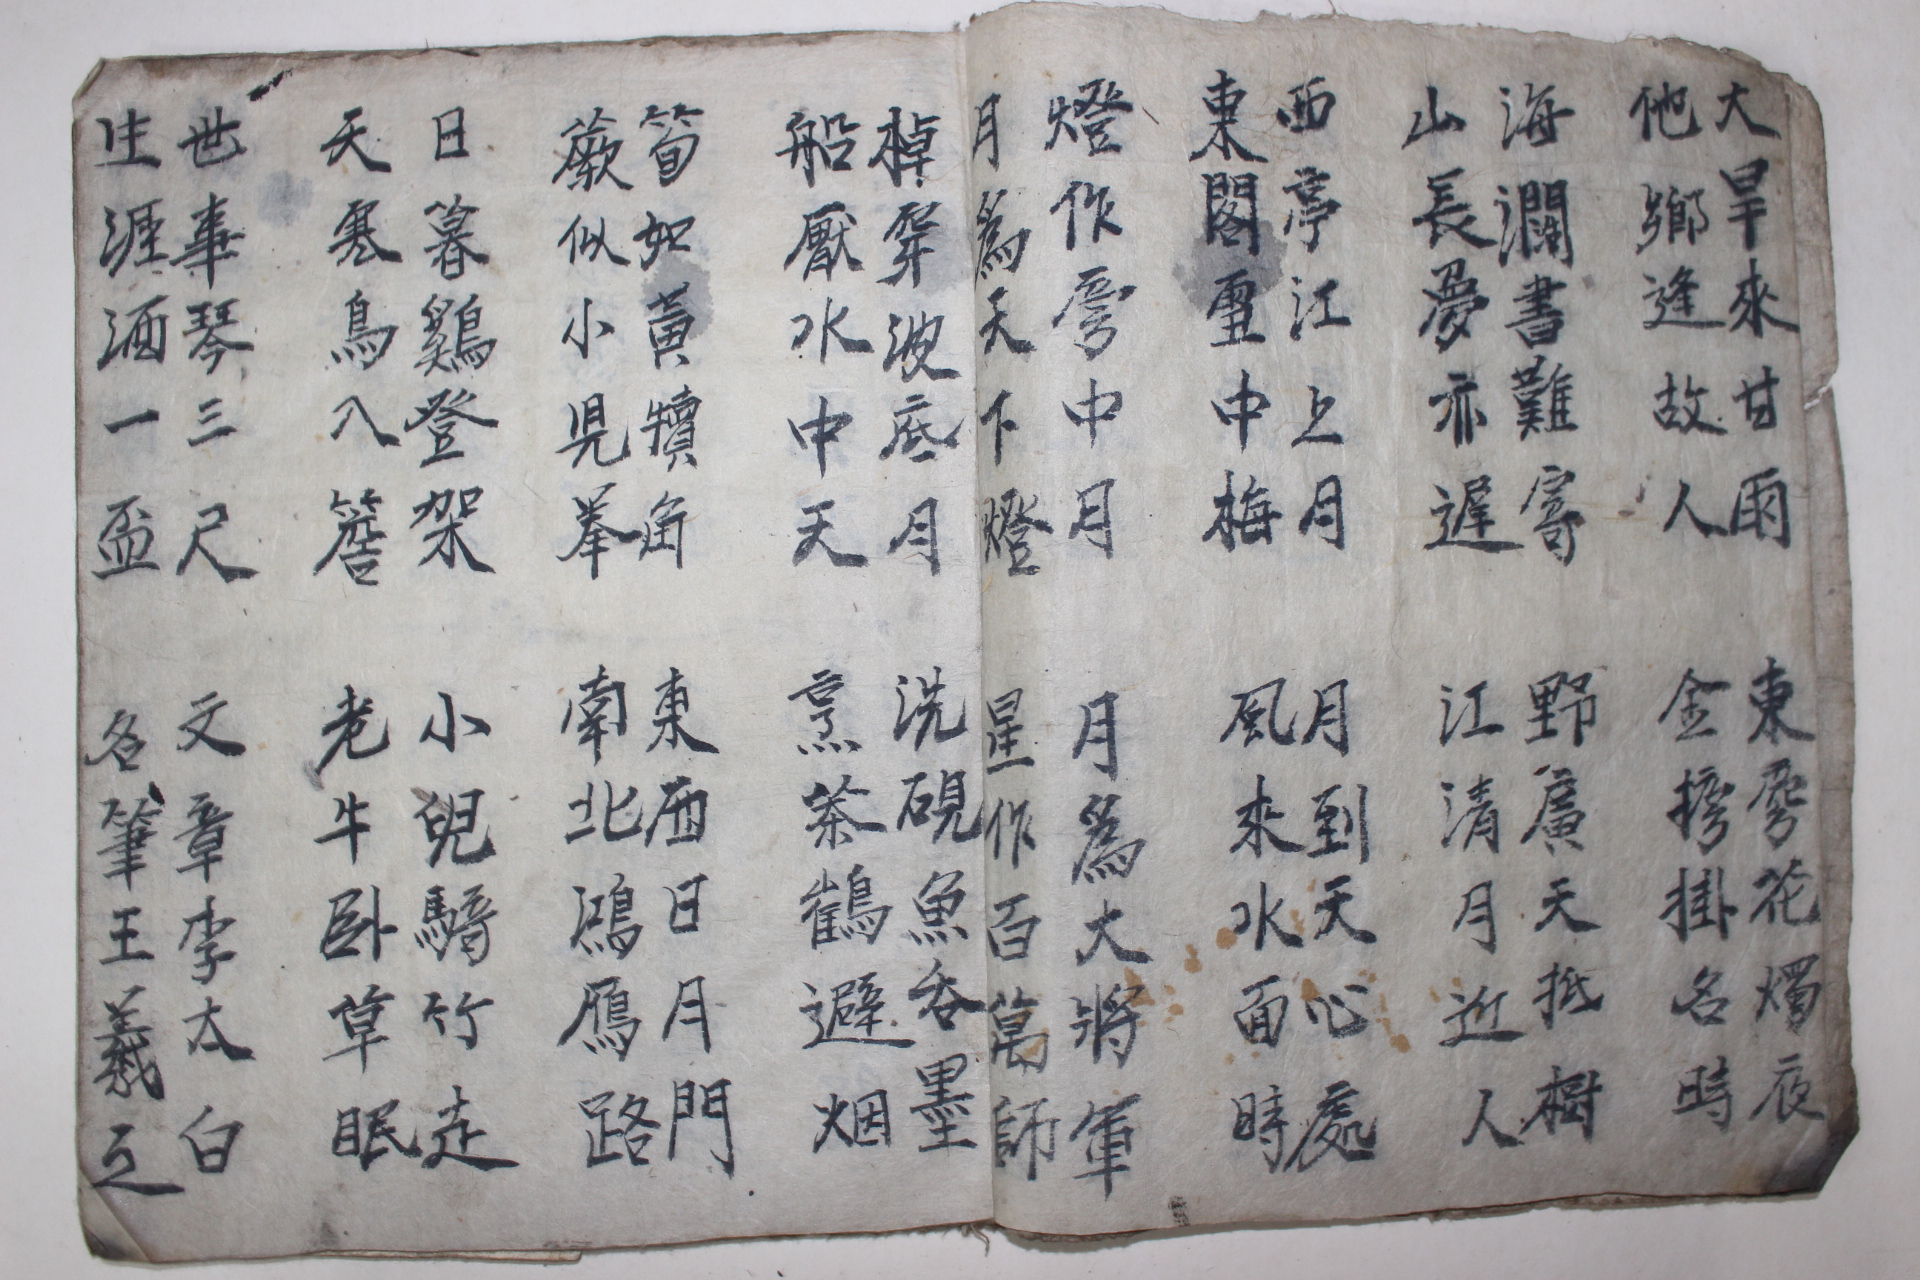 大旱來甘雨
他鄕逢故人
東房花燭夜
金榜掛名時
海濶書難寄
山長夢亦遲
野廣天抵樹
江清月近人
西亭江上月
東閣雪中梅
月到天心處
風來水面時
燈作房中月
月爲天下燈
月爲大將軍
星作百萬師
棹穿波底月
船厭水中天
洗硯魚呑墨
烹茶鶴避烟
筍如黃犢角
蕨似小児拳
東西日月門
南北鴻鴈路
日暮鷄登架
天寒鳥入簷
小兒騎竹走
老牛臥草眠
世事琴三尺
生涯酒一盃
文章李太白
名筆王羲之